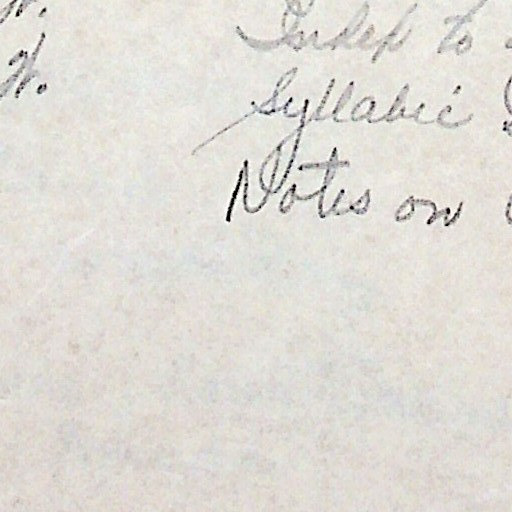 Index to
W. Syllabic
Notes on